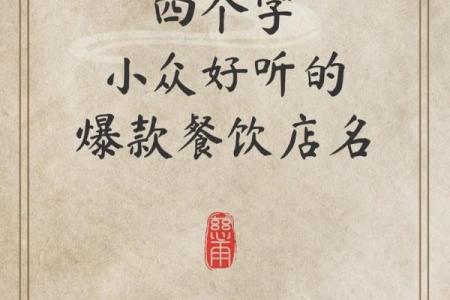 四个字
小众好听的
爆款餐饮店名
慈雨